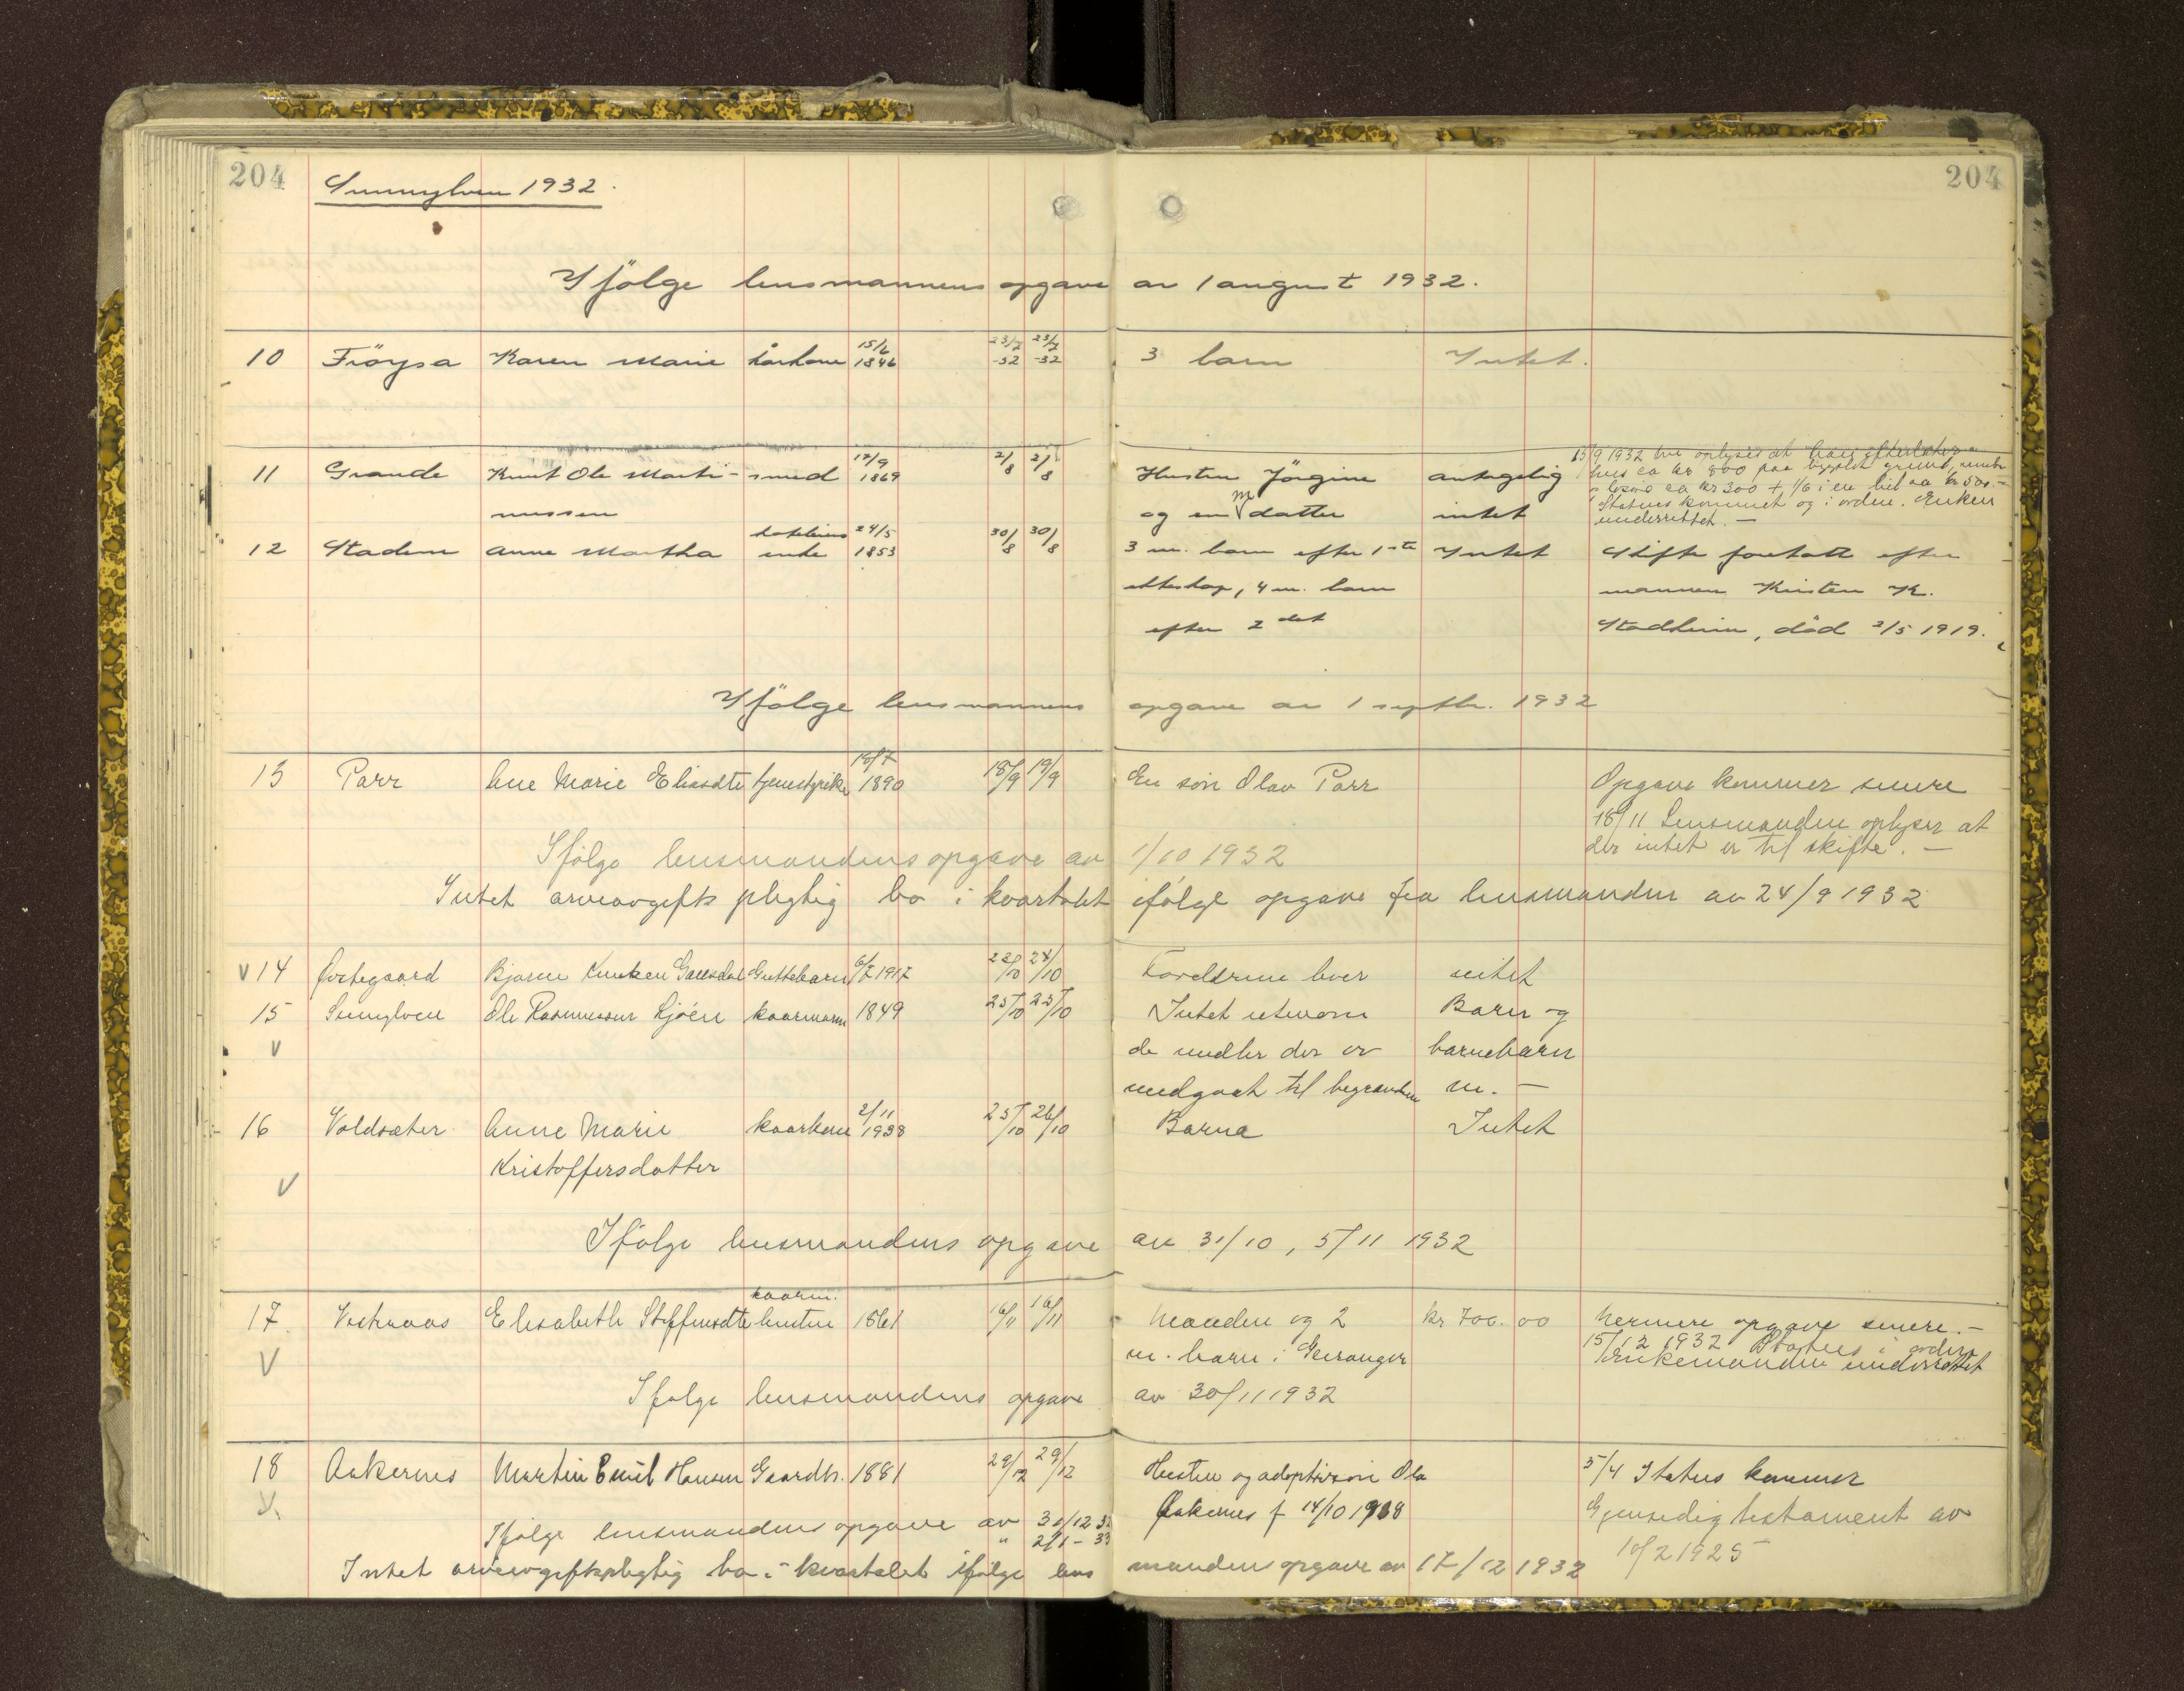 204 Sunnylven 1932. 204
Ifölge lensmannens opgave av 1 august 1932.
15/6 23/7 23/7
10 Fröysa Karen Marie kårkone 1846 -32 -32 3 barn Intet.
15/9 1932 han efterlater
17/9 2/8 2/8
11 Grande Knut Ole Marti- smed 1869 Hustru Jörgine antagelig hus ca kr 800 paa bygslet grund,
løsøre ca kr 300 + 1/6 i en bil ca kr 500.-
nussen og en M datter intet Status kommet og i orden. Enken
underrettet. -
24/5 30/8 30/8
12 Stadem Anne Martha enke 1853 3 m. barn efter 1ste Intet Skifte foretatt efter
ekteskap, 4 m. barn mannen Kristen K.
efter 2det Stadheim, död 2/5 1919.
Ifölge lensmannens opgave av 1 septbr. 1932
18/7
13 Parr Ane Marie Eliasdtr 1890 18/9 19/9 En søn Olav Parr Opgave kommer senere
18/11 Lensmanden oplyser at
Ifölge lensmandens opgave av 1/10 1932 der intet er til skifte. -
Intet arveavgifts pligtig bo i kvartalet ifölge opgave fra lensmanden av 24/9 1932
V 14 Østegaard Bjarne Knutsen Guttebarn 6/7 1917 22/10 24/10 Foreldrene lever intet
15 Sunnylven Ole Rasmussen Kjöen kaarmann 1849 25/10 25/10 Intet utenom Barn og
V de midler der er barnebarn
medgaat til begravelsen m. -
2/11
16 Voldsæter Anne Marie kaarkone 1938 25/10 26/10 Barna Intet
Kristoffersdatter
V
Ifölge lensmandens opgave av 31/10, 5/11 1932
kaarm.
17 Vesteraas Elisabeth Steffensdtr hustru 1861 16/11 16/11 Manden og 2 kr 700. 00 Nermere opgave senere. -
15/12 1932 Status i orden
V m. barn i Geiranger Enkemanden underrettet
Ifølge lensmandens opgave av 30/11 1932
18 Aakernes Martin Emil Hansen Gaardbr. 1881 29/12 29/12 Hustru og adoptivsön Ola 5/4 Status kommer
V. Aakernes f 14/10 1908 Gjensidig testament av
Ifølge lensmandens opgave av 31/12 32 10/2 1925
" 2/1 - 33
Intet arveavgiftspligtig bo i kvartalet ifølge lens mandens opgave av 17/12 1932